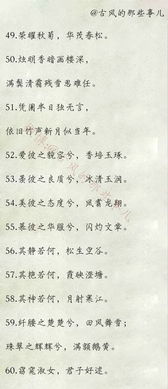 @古风的那些事儿
49.荣曜秋菊，华茂春松。
50.炷明香暗画楼深，
满鬓清霜残雪思难任。
51.凭阑半日独无言，
依旧竹声新月似当年。
52.爱彼之貌容兮，香培玉琢。
53.慕彼之良质兮，冰清玉润。
54.美彼之态度兮，凤翥龙翔。
55.慕彼之华服兮，闪灼文章。
56.其静若何，松生空谷。
57.其艳若何，霞映澄塘。
58.其神若何，月射寒江。
59.纤腰之楚楚兮，回风舞雪；
珠翠之辉辉兮，满额鹅黄。
60.窈窕淑女，君子好逑。